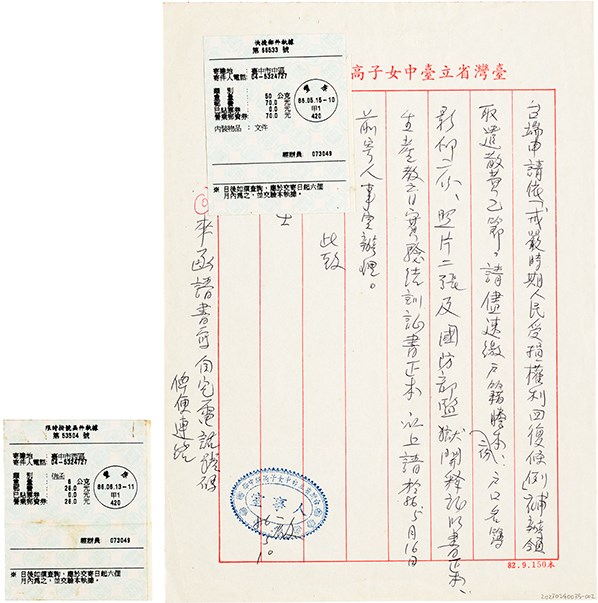 臺灣省立臺中女子高
台端申請依「戒嚴時期人民受損權利回復條例」補辦領
取遣散費乙節,請儘速繳戶籍謄本、戶口名簿
影印一份、照片二張及國防部監獄開釋證明書正本、
生產教 實驗 結訓証書正本 以上請於86.5月16日
前寄人事室辦理。
此致
來函請書 宅電話號碼
俾便連絡
人事室
86
5
82.9.150本
快捷郵件執據
第 66533 號
寄達地 : 臺中市中區
寄件人電話: 04-5324727
類別 :
重量 : 50 公克
郵費 : 70.0 元
已貼票券 0.0 元
營業郵資券 : 70.0 元
86.05.15-10
甲1
420
內裝物品 : 文件
經辦員: 073049
※ 日後如須查詢,應於交寄日起六個
月內為之,並交驗本執據。
限時掛號函件執據
第 53504 號
寄達地 : 臺中市南區
寄件人電話: 04-5324727
類別 : 信函
重量 : 8 公克
郵費 : 26.0 元
已貼票券 : 0.0 元
營業郵資券 : 26.0 元
86.06.13-11
甲1
420
經辦員: 073049
※ 日後如須查詢,應於交寄日起六個
月內為之,並交驗本執據。
20230740035-002